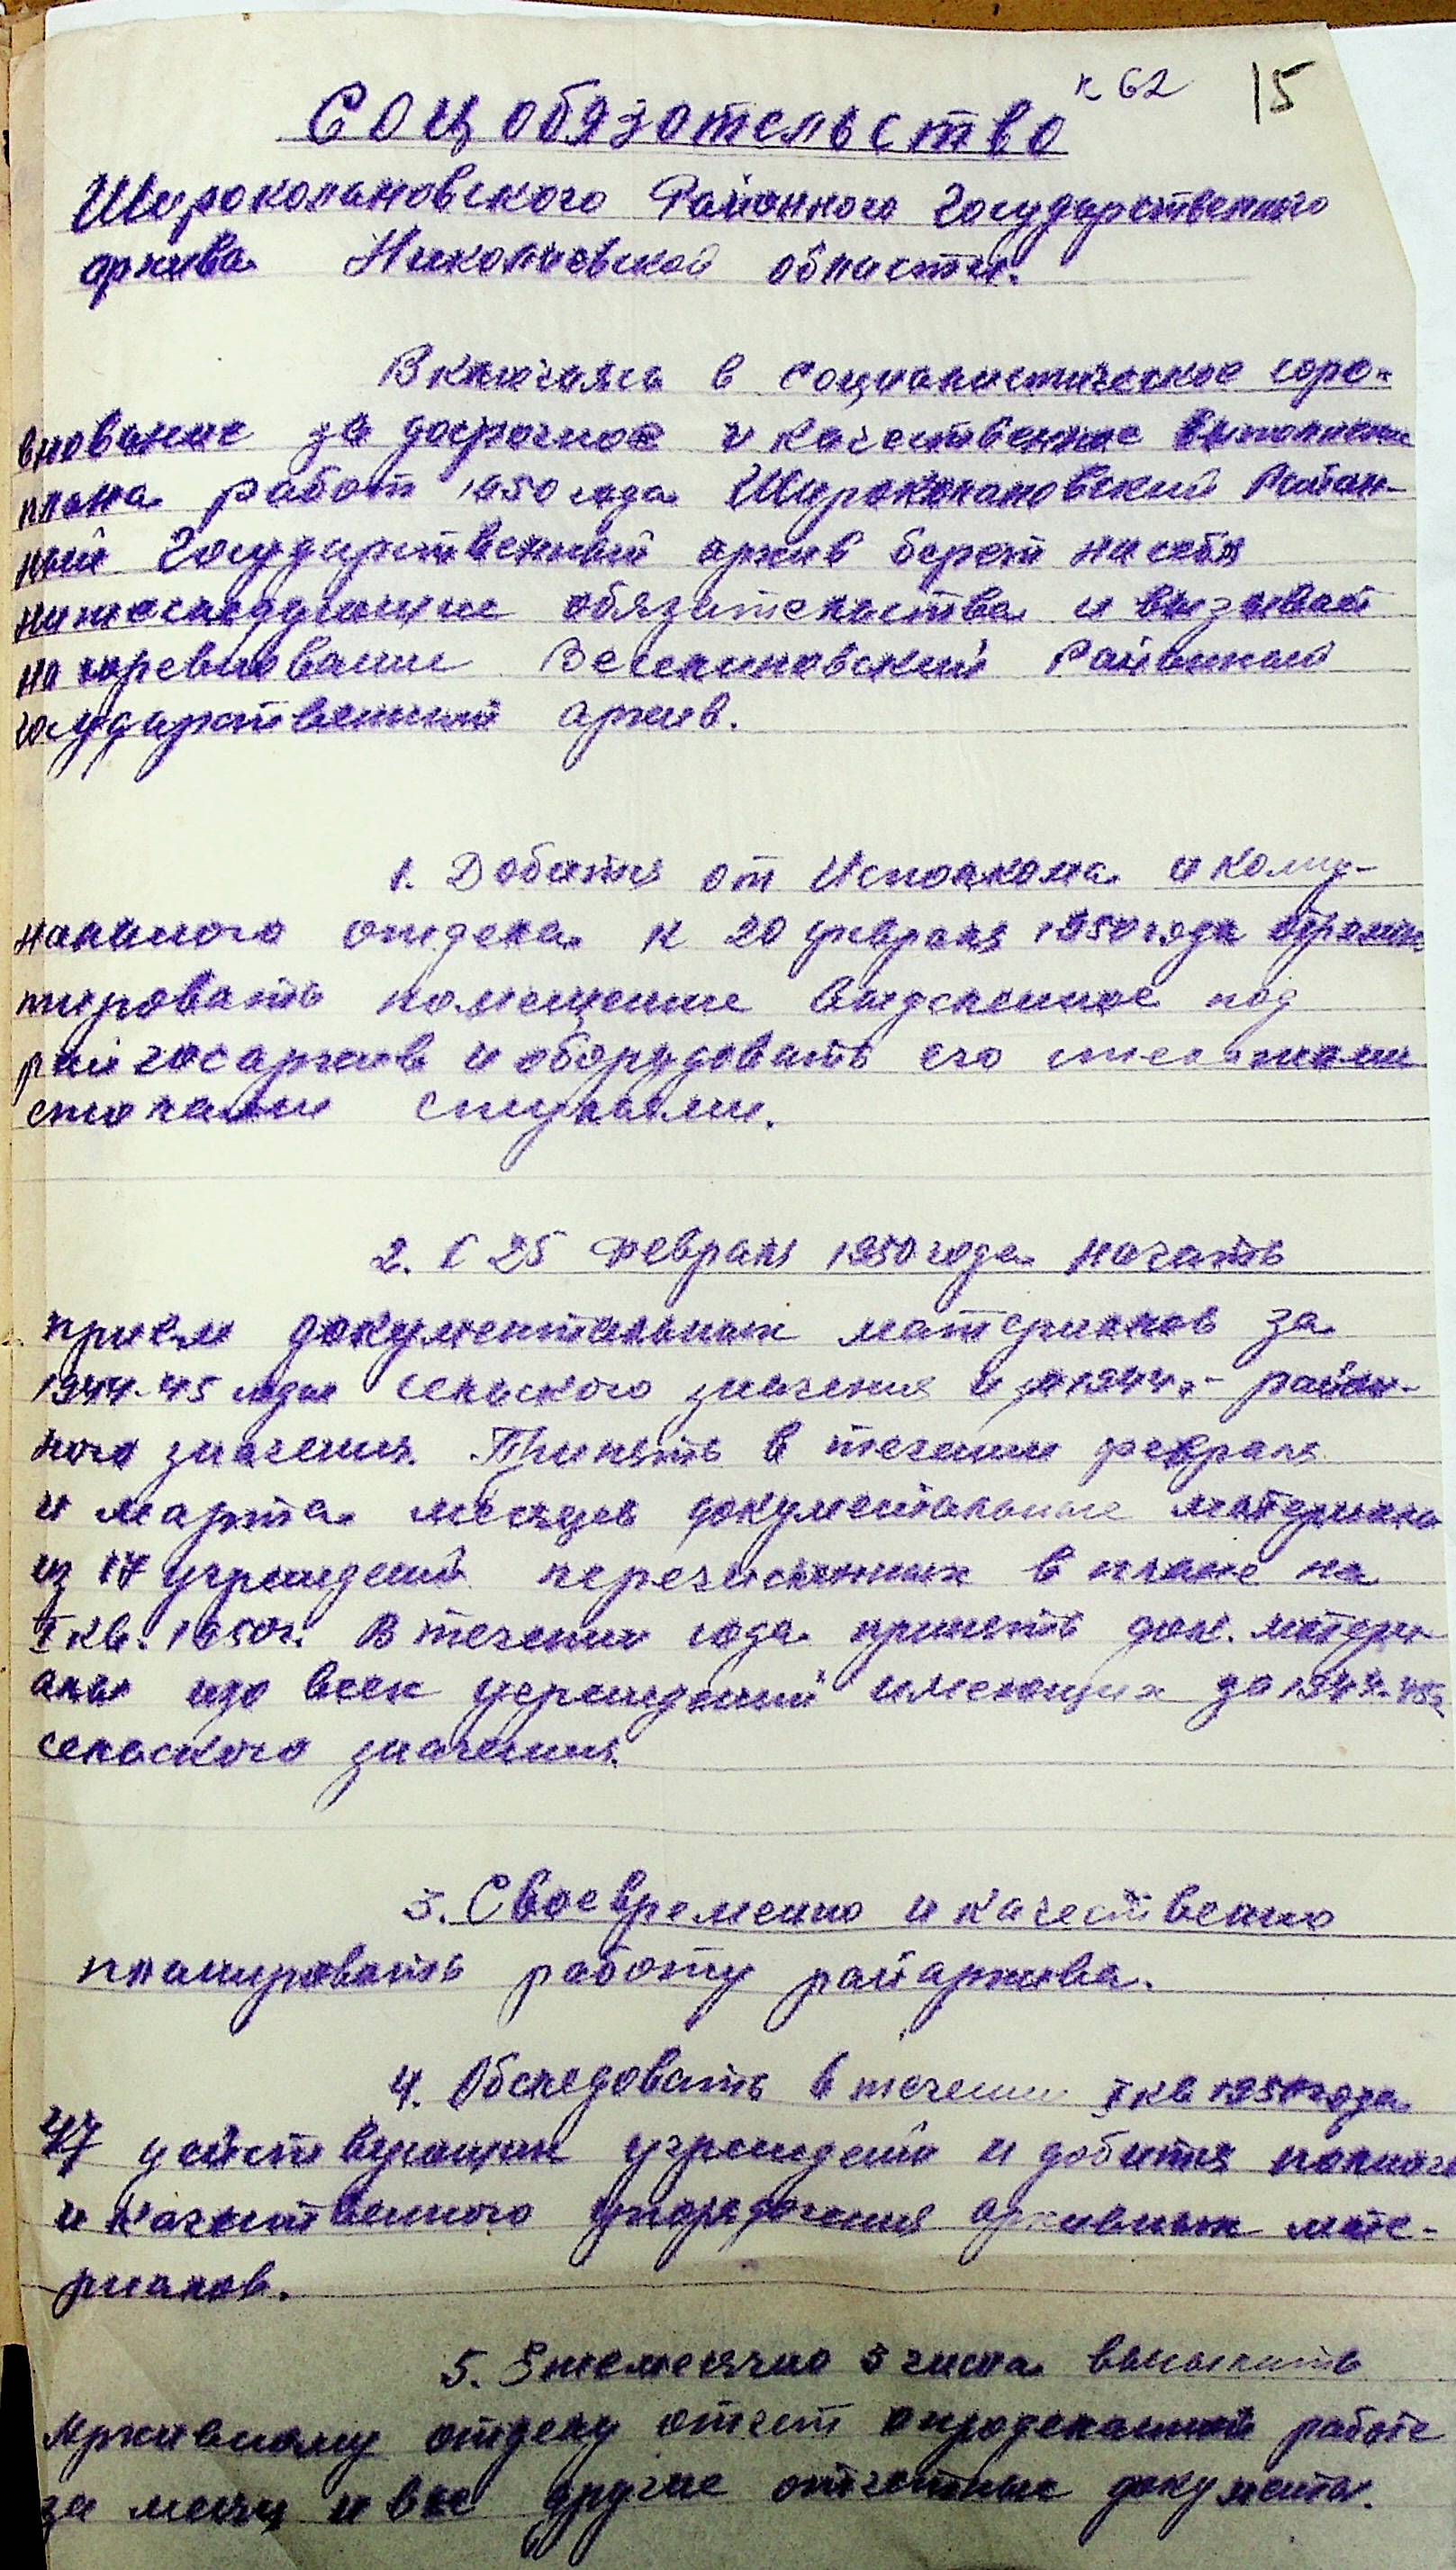 к 62 15
Соцобязательство
Широколановского Районного Государственного
архива Николаевской области.
Включаясь в социалистическое соре-
внование за досрочное и качественное выполнение
плана работ 1950 года Широколановский Район-
ный Государственный архив берет на себя
нижеследующие обязательства и вызывает
на соревнование Веселиновский Районный
государственный архив.
1. Добится от Исполкома и комму-
нального отдела к 20 февраля 1950 года отремон
тировать помещение выделенное под
райгосархив и оборудовать его стелажами
столами стульями.
2. С 25 февраля 1950 года начать
прием документальных материалов за
1944-45 годы сельского значения и за 1944 г. район-
ного значения. Принять в течении февраля
и марта месяцев документальные материалы
из 17 учреждений перечисленных в плане на
I кв. 1950 г. В течении года принять док. матери-
алы изо всех учреждений имеющих за 1944-45 г.
сельского значения.
3. Своевременно и качественно
планировать работу райархива.
4. Обследовать в течении I кв 1950 года
47 действующих учреждений и добится полного
и качественного упорядочения архивных мате-
риалов.
5. Ежемесячно 3 числа высылать
Архивному отделу отчет о проделанной работе
за месяц и все другие отчетные документы.